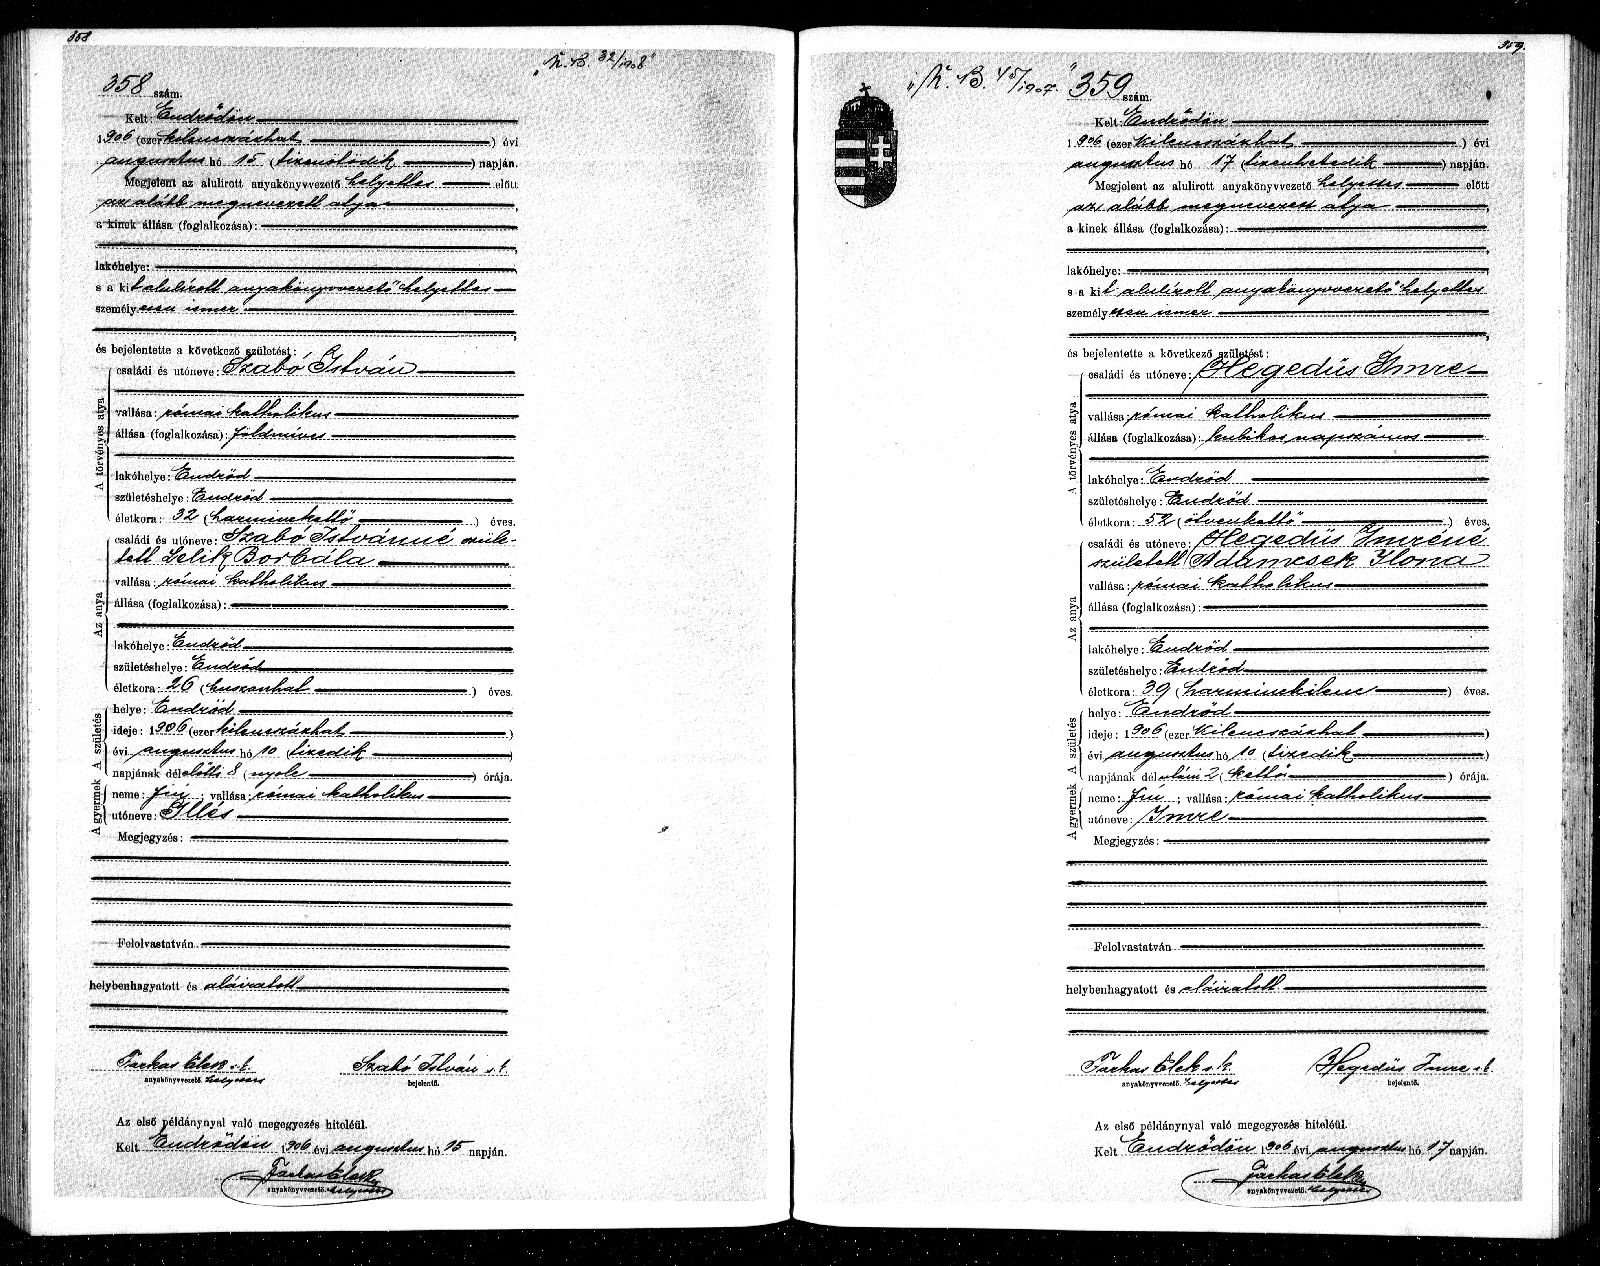 358
„N. B. 32/1908"
358 szám.
Kelt: Endrődön
1906 (ezer kilenczszázhat ) évi
augusztus hó 15 (tizenötödik ) napján.
Megjelent az alulirott anyakönyvvezető helyettes előtt
az alább megnevezett atya ,
a kinek állása (foglalkozása):
lakóhelye:
s a kit alulírott anyakönyvvezető helyettes
személyesen ismer
és bejelentette a következő születést:
A törvényes atya
családi és utóneve: Szabó István
vallása: római katholikus
állása (foglalkozása): földmíves
lakóhelye: Endrőd
születéshelye: Endrőd
életkora: 32 (harminckettő ) éves.
Az anya
családi és utóneve: Szabó Istvánné szüle-
tett Lelik Borbála
vallása: római katholikus
állása (foglalkozása):
lakóhelye: Endrőd
születéshelye: Endrőd
életkora: 26 (huszonhat ) éves.
A születés
helye: Endrőd
ideje: 1906 (ezer kilenczszázhat )
évi augusztus hó 10 (tizedik )
napjának délelőtti 8 (nyolc ) órája.
A gyermek
neme: fiú ; vallása: római katholikus
utóneve: Illés
Megjegyzés:
Felolvastatván
helybenhagyatott és aláíratott
Farkas Elek s. k. Szabó István s. k.
anyakönyvvezető. helyettes bejelentő.
Az első példánynyal való megegyezés hiteléül.
Kelt Endrődön 1906 évi augusztus hó 15 napján.
Farkas Elek
anyakönyvvezető. helyettes
359.
„N. B. 45/1907."
359 szám.
Kelt: Endrődön
1906 (ezer kilenczszázhat ) évi
augusztus hó 17 (tizenhetedik ) napján.
Megjelent az alulirott anyakönyvvezető helyettes előtt
az alább megnevezett atya ,
a kinek állása (foglalkozása):
lakóhelye:
s a kit alulírott anyakönyvvezető helyettes
személyesen ismer
és bejelentette a következő születést:
A törvényes atya
családi és utóneve: Hegedüs Imre
vallása: római katholikus
állása (foglalkozása): kubikos napszámos
lakóhelye: Endrőd
születéshelye: Endrőd
életkora: 52 (ötvenkettő ) éves.
Az anya
családi és utóneve: Hegedüs Imréné
született Adamcsek Ilona
vallása: római katholikus
állása (foglalkozása):
lakóhelye: Endrőd
születéshelye: Endrőd
életkora: 39 (harminckilenc ) éves.
A születés
helye: Endrőd
ideje: 1906 (ezer kilenczszázhat )
évi augusztus hó 10 (tizedik )
napjának délutáni 2 (kettő ) órája.
A gyermek
neme: fiú ; vallása: római katholikus
utóneve: Imre
Megjegyzés:
Felolvastatván
helybenhagyatott és aláíratott
Farkas Elek s. k. Hegedüs Imre s. k.
anyakönyvvezető. helyettes bejelentő.
Az első példánynyal való megegyezés hiteléül.
Kelt Endrődön 1906 évi augusztus hó 17 napján.
Farkas Elek
anyakönyvvezető. helyettes